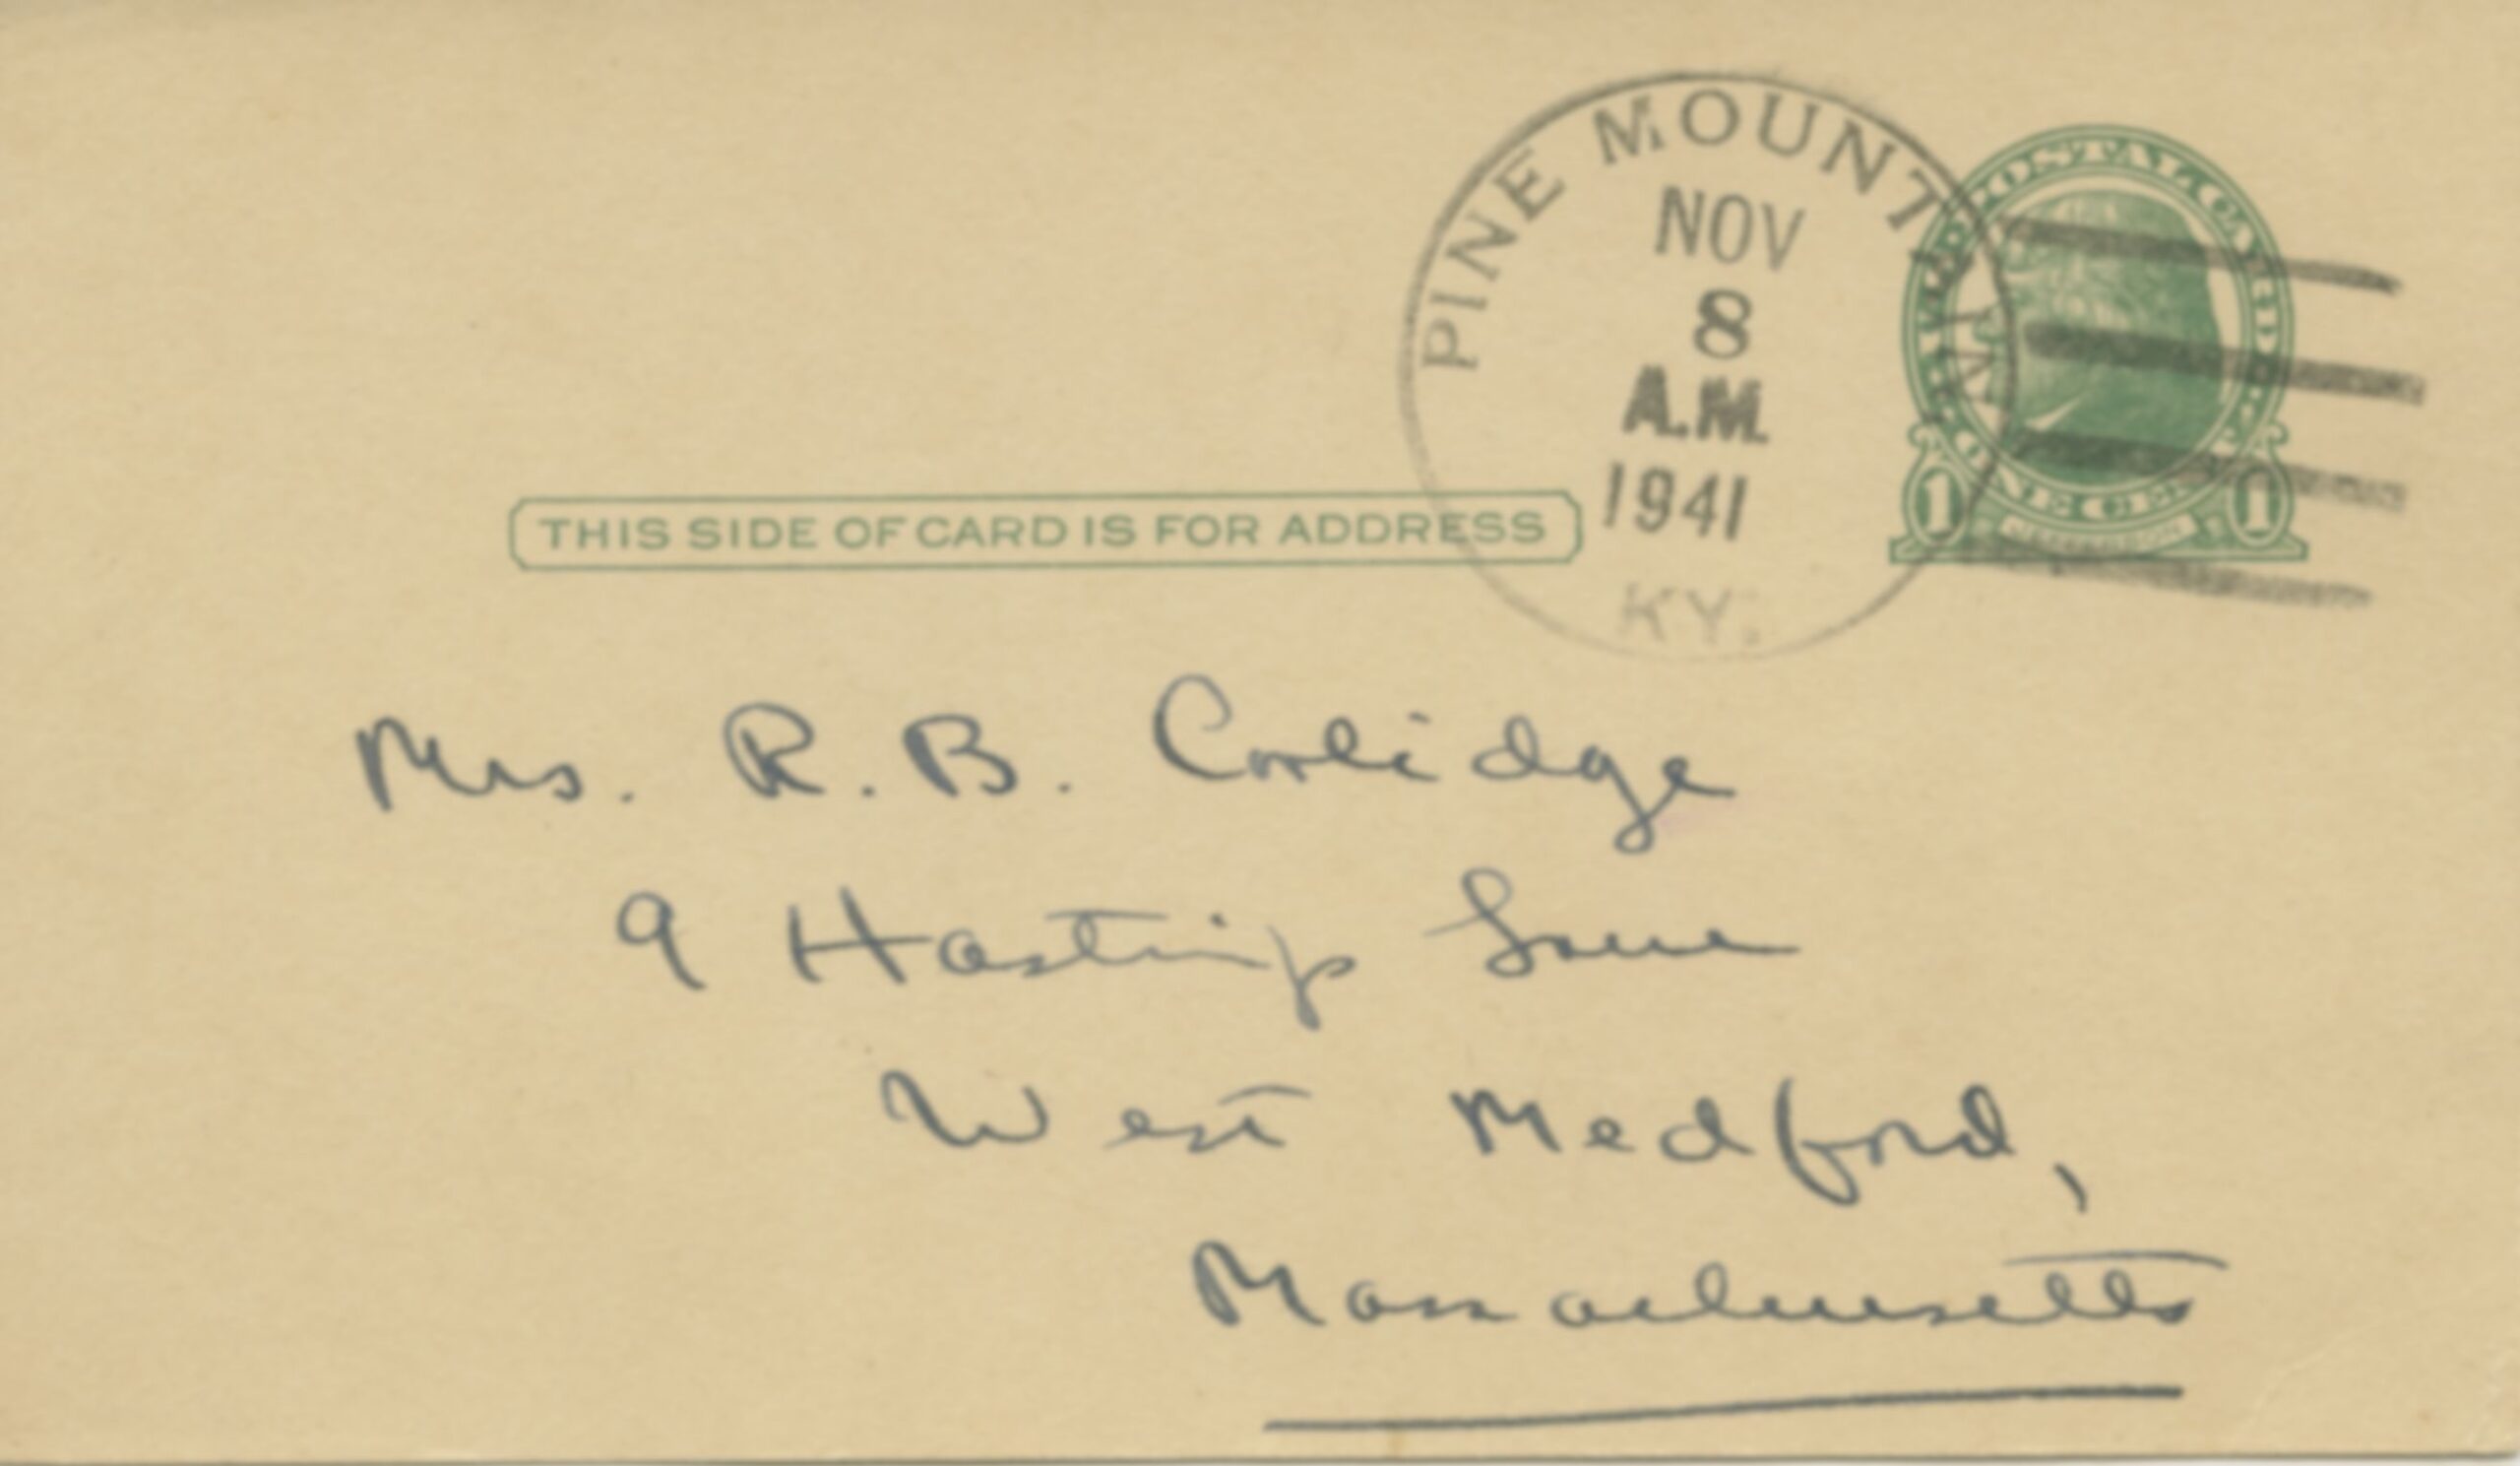 PINE MOUNTAIN
NOV
8
A.M.
1941
KY.
U.S. POSTAL CARD
ONE CENT
1 JEFFERSON 1
THIS SIDE OF CARD IS FOR ADDRESS
Mrs. R. B. Coolidge
9 Hastings Lane
West Medford,
Massachusetts